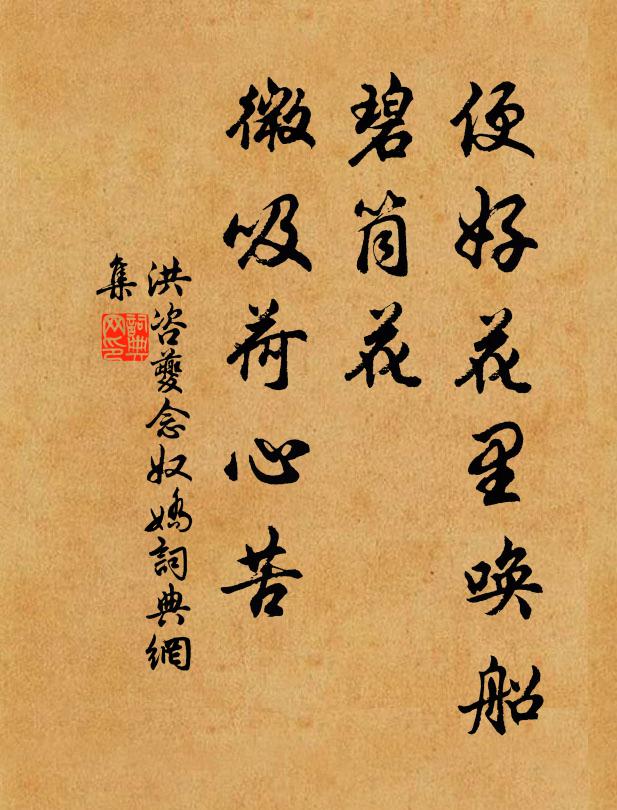 便好花里唤船
碧筒花
微吸荷心苦
洪咨夔念奴嬌詞典網
集
詞典
网印